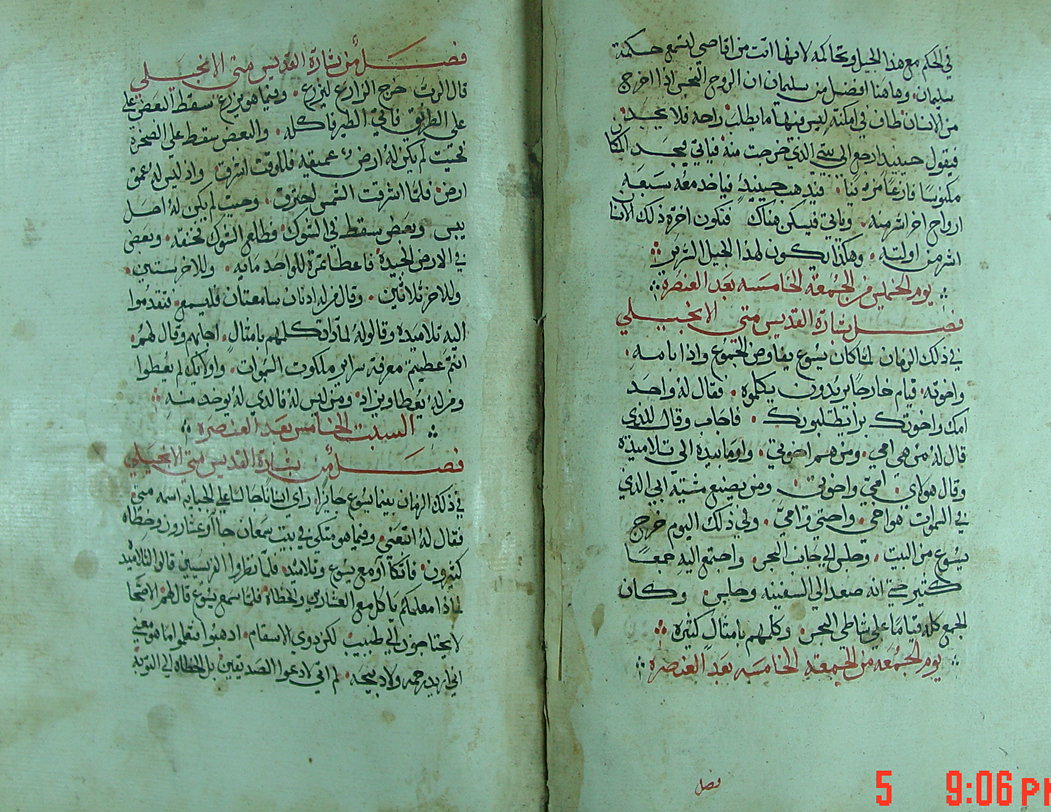 في الحكم مع هذا الجيل وتحاكمه لانها اتت من اقاصي لتسمع حكمة
سليمان وهاهنا افضل من سليمان ان الروح النجس اذا اخرج
من الانسان طاف في امكنة ليس فيها ما يطلب راحه فلا يجد
فيقول حينيد ارجع الى بيتي الذي خرجت منه فياتي فيجد المكان
مكنوسا فارغا مزينا فيذهب حينيد فياخذ معه سبعه
ارواح اخر اشر منه وياتي فيسكن هناك فتكون اخرة ذلك الانسان
اشر من اولته وهكذا يكون لهذا الجيل الشرير
يوم الخميس من الجمعة الخامسه بعد العنصرة
فصل بشارة القديس متى الانجيلي
في ذلك الزمان لما كان يسوع يفاوض الجموع واذا بامه
واخوته قيام خارجا يريدون يكلموه فقال له واحد
امك واخوتك برا يطلبونك فاجاب وقال للذي
قال له من هي امي ومن هم اخوتي واومأ بيده الى تلاميذه
وقال هولاي امي واخوتي ومن يصنع مشية ابي الذي
في السموات هو اخي واختي وامي وفي ذلك اليوم خرج
يسوع من البيت وجلس الى جانب البحر واجتمع اليه جمعا
كثير حتى انه صعد الى السفينه وجلس وكان
الجمع كله قياما على شاطي البحر وكلمهم بامثال كثيره
يوم الجمعه من الجمعة الخامسه بعد العنصره
فصل
فصل من بشارة القديس متى الانجيلي
قال الرب خرج الزارع ليزرع وفيما هو يزرع سقط البعض على
على الطريق فاتى الطير فاكله والبعض سقط على الصخرة
بحيث لم يكن له ارض عميقه فللوقت اشرق واذ ليس له عمق
ارض فلما اشرقت الشمس احترق وحيث لم يكن له اصل
يبس وبعض سقط في الشوك فطلع الشوك فخنقه وبعض
في الارض الجيدة فاعطا ثمرة للواحد مايه وللاخر ستين
وللاخر ثلاثين وقال من له اذنان سامعتان فليسمع فتقدموا
اليه تلاميذه وقالو له لماذا تكلمهم بامثال اجابهم وقال لهم
انتم عطيتم معرفة سراير ملكوت السموات واولايك لم يعطوا
ومن له يعطا ويزاد ومن ليس له فالذي له يوخد منه
السبت الخامس بعد العنصره
فصل من بشارة القديس متى الانجيلي
في ذلك الزمان بينما يسوع جايزا راى انسانا جالسا على الجبايه اسمه متى
فقال له اتبعني وفيما هو متكي في بيت سمعان جا عشارون وخطاه
كثيرون فاتكاوا مع يسوع وتلاميذه فلما نظروا الفريسيين قالوا لتلاميذه
لماذا معلمكم ياكل مع العشارين والخطاه فلما سمع يسوع قال لهم الاصحا
لا يحتاجون الى طبيب لكن ذوي الاسقام اذهبوا تعلموا ما هو معنى
اني اريد رحمه ولا ذبيحه لم اتي لادعوا الصديقين بل الخطاه الى التوبه
5 9:06 PM